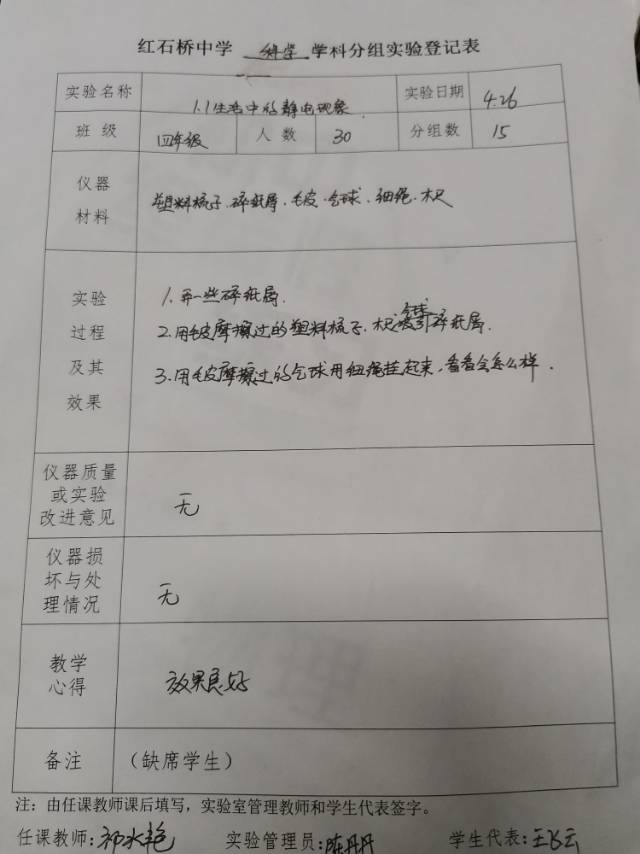 红石桥中学 科学 学科分组实验登记表
实验名称 1.1生活中的静电现象 实验日期 4.26
班 级 四年级 人 数 30 分组数 15
仪器
材料
塑料梳子、碎纸屑、毛皮、气球、细绳、木尺
实验
过程
及其
效果
1.弄一些碎纸屑.
2.用毛皮摩擦过的塑料梳子、木尺、气球吸引碎纸屑.
3.用毛皮摩擦过的气球用细绳挂起来,看看会怎么样.
仪器质量
或实验
改进意见
无
仪器损
坏与处
理情况
无
教学
心得
效果良好
备注 (缺席学生)
注:由任课教师课后填写,实验室管理教师和学生代表签字。
任课教师:祁水艳 实验管理员:陈丹丹 学生代表:王飞云